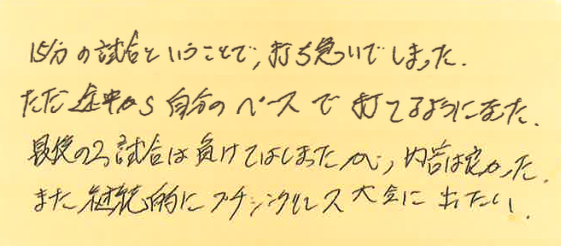 15分の試合ということで、打ち急いでしまった.
ただ途中から自分のペースで打てるようになった.
最後の2試合は負けてはしまったが、内容は良かった.
また継続的にプチシングルス大会に出たい.